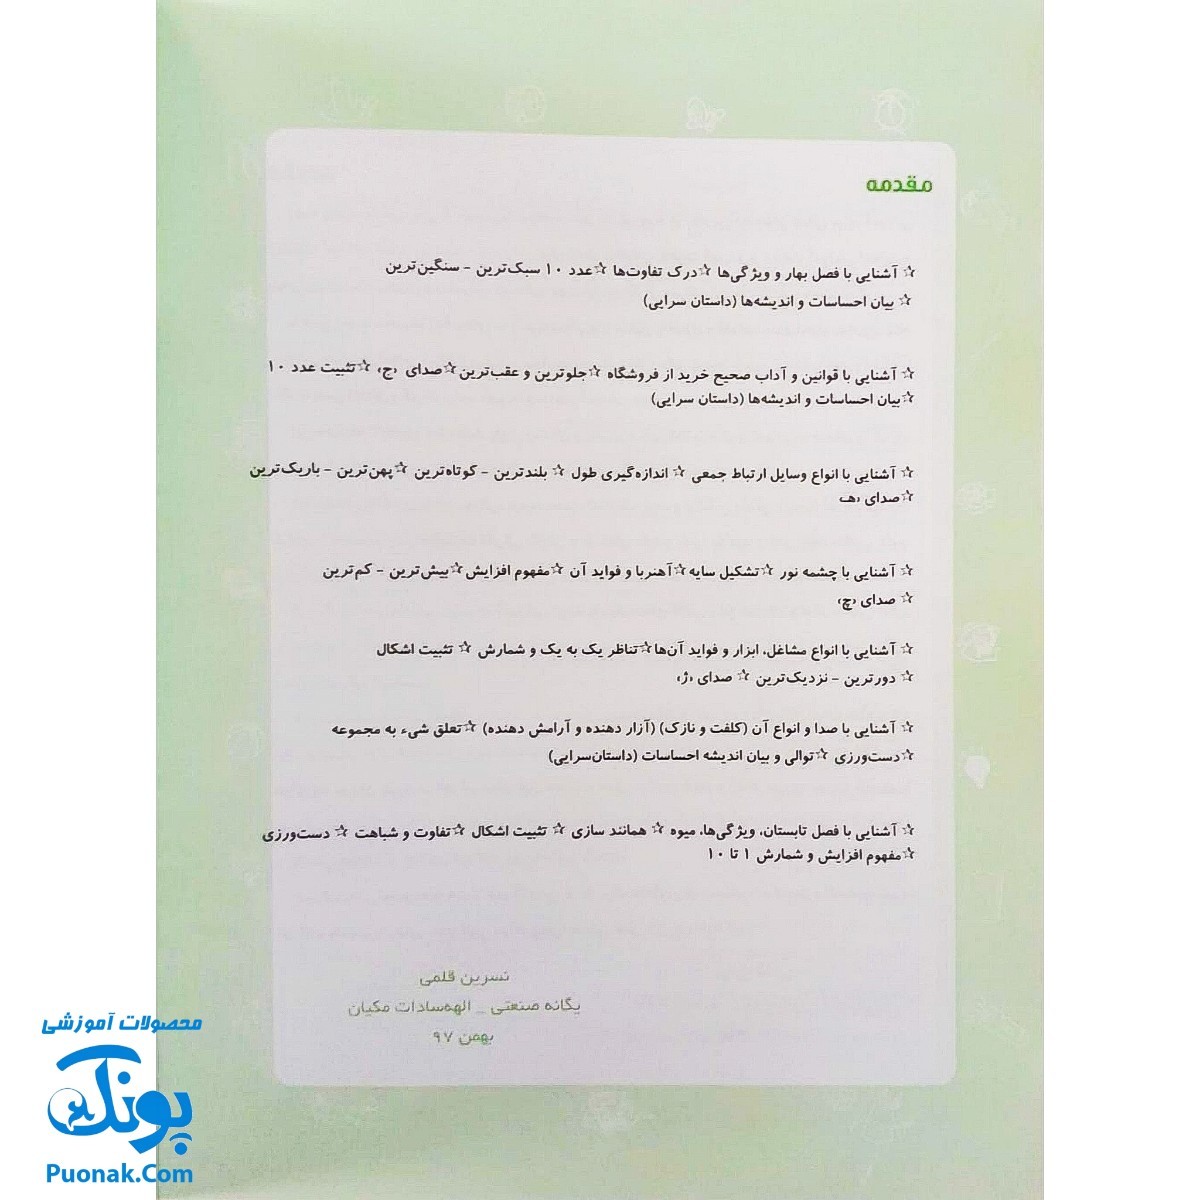 مقدمه
☆ آشنایی با فصل بهار و ویژگی‌ها ☆درک تفاوت‌ها ☆عدد ۱۰ سبک‌ترین - سنگین‌ترین
☆ بیان احساسات و اندیشه‌ها (داستان سرایی)
☆ آشنایی با قوانین و آداب صحیح خرید از فروشگاه ☆جلوترین و عقب‌ترین☆صدای «ج» ☆تثبیت عدد ۱۰
☆بیان احساسات و اندیشه‌ها (داستان سرایی)
☆ آشنایی با انواع وسایل ارتباط جمعی ☆ اندازه‌گیری طول ☆ بلندترین - کوتاه‌ترین ☆پهن‌ترین - باریک‌ترین
☆صدای «هـ»
☆ آشنایی با چشمه نور ☆تشکیل سایه☆آهنربا و فواید آن ☆مفهوم افزایش☆بیش‌ترین - کم‌ترین
☆ صدای «چ»
☆ آشنایی با انواع مشاغل، ابزار و فواید آن‌ها☆تناظر یک به یک و شمارش ☆ تثبیت اشکال
☆ دورترین - نزدیک‌ترین ☆ صدای «ژ»
☆ آشنایی با صدا و انواع آن (کلفت و نازک) (آزار دهنده و آرامش دهنده) ☆تعلق شیء به مجموعه
☆دست‌ورزی ☆توالی و بیان اندیشه احساسات (داستان‌سرایی)
☆ آشنایی با فصل تابستان، ویژگی‌ها، میوه ☆ همانند سازی ☆ تثبیت اشکال ☆تفاوت و شباهت ☆ دست‌ورزی
☆مفهوم افزایش و شمارش ۱ تا ۱۰
نسرین قلمی
یگانه صنعتی _ الهه‌سادات مکیان
بهمن ۹۷
محصولات آموزشی
پونک
Puonak.Com